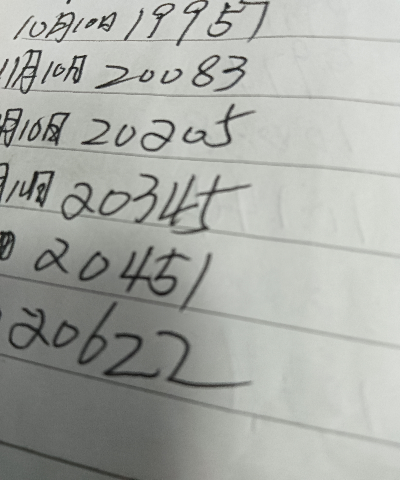 10月10日 19957
11月10日 20083
月10日 20205
20345
20451
20622